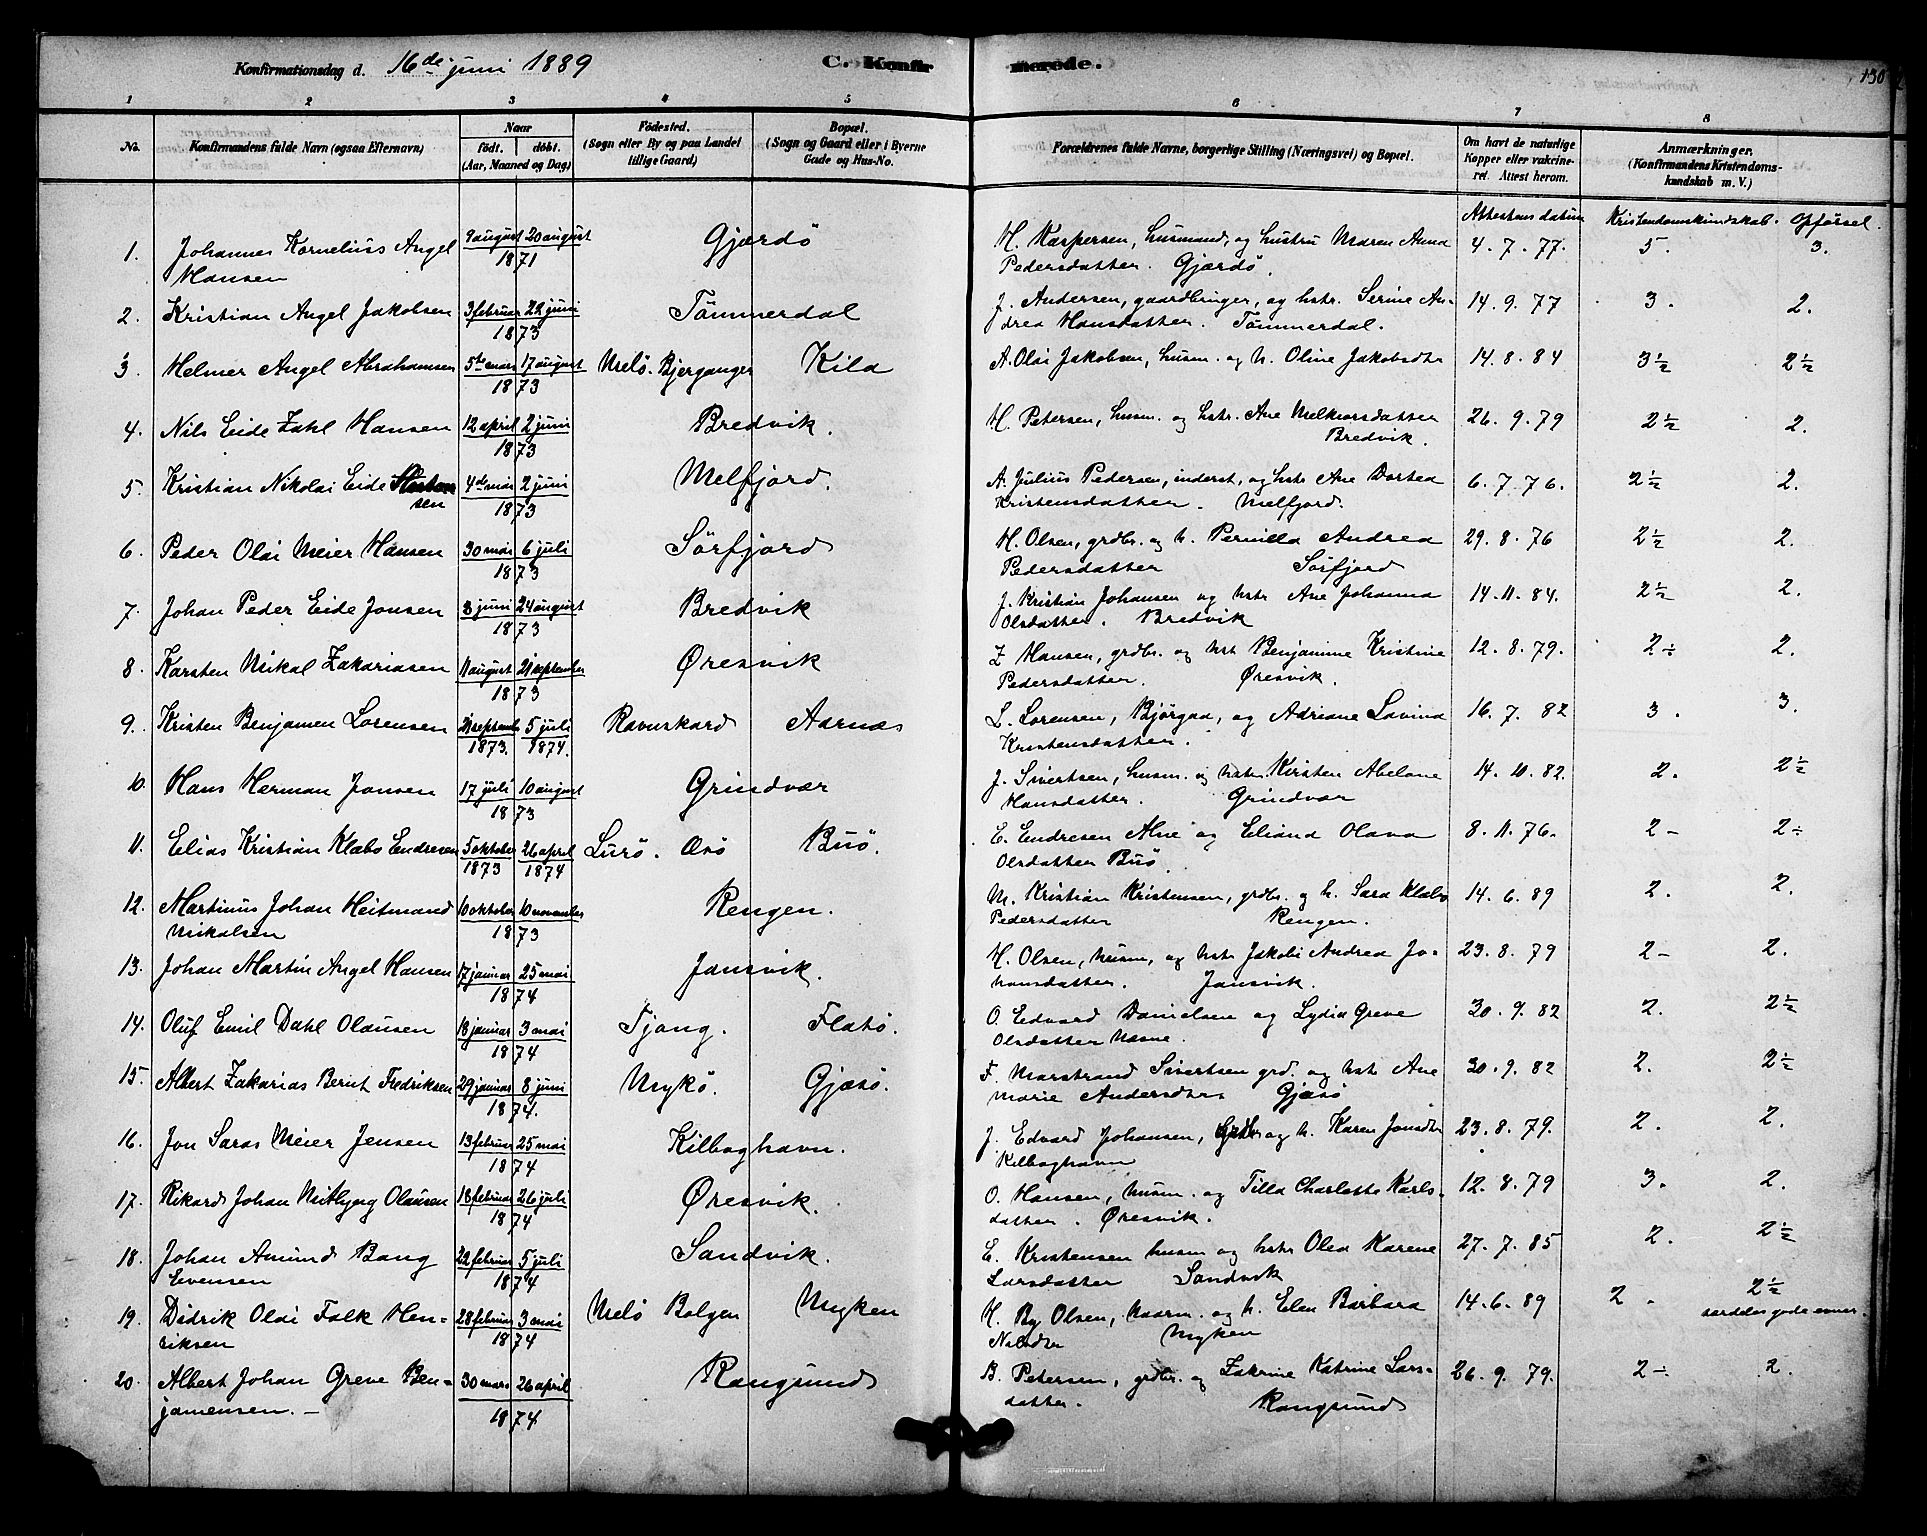 Konfirmationsdag d. 16de juni 1889 C. Konfirmerede. 130
1 2 3 4 5 6 7 8
No. Konfirmandens fulde Navn (ogsaa Efternavn) Naar født. døbt. (Aar, Maaned og Dag) Fødested. (Sogn eller By og paa Landet tillige Gaard) Bopæl. (Sogn og Gaard eller i Byerne Gade og Hus-No. Forældrenes fulde Navne, borgerlige Stilling (Næringsvei) og Bopæl. Om havt de naturlige Kopper eller vakcineret. Attest herom. Anmærkninger, (Konfirmandens Kristendomskundskab m. V.)
Attestens datum Kristendomskundskab. Opførsel.
1. Johannes Kornelius Angel 9 august 20 august Gjærdö H. Kaspersen, husmand, og hustru Maren Anna 4. 7. 77. 5. 3.
Hansen 1871 Pedersdatter. Gjærdö.
2. Kristian Angel Jakobsen 3 februar 22 juni Tömmerdal J. Andersen, gaardbruger, og hstr. Serine An- 14. 9. 77 3. 2.
1873 drea Hansdatter. Tömmerdal.
3. Helmer Angel Abrahamsen 5te mars 17 august Melö. Bjerganger Kila A. Olai Jakobsen, husm. og h. Oline Jakobsdtr 14. 8. 84 3½ 2½
1873
4. Nils Eide Zahl Hansen 12 april 2 juni Bredvik. H. Petersen, husm. og hstr. Ane Melkiorsdatter 26. 9. 79 2½ 2.
1873 Bredvik.
5. Kristian Nikolai Eide 4de mai 2 juni Melfjord. A. Julius Pedersen, inderst, og hstr Ane Dortea 6. 7. 76. 2½ 2.
sen 1873 Kristensdatter. Melfjord.
6. Peder Olai Meier Hansen 30 mai 6 juli Sörfjord H. Olsen, grdbr. og h. Pernilla Andrea 29. 8. 76 2½ 2.
1873 Pedersdatter Sörfjord
7. Johan Peder Eide Jonsen 3 juni 24 august Bredvik J. Kristian Johansen og hstr Ane Johanna 14. 11. 84. 2½ 2.
1873 Olsdatter. Bredvik
8. Karsten Mikal Zakariasen 11 august 21 september Øresvik Z Hansen, grdbr. og hst Benjamine Kristine 12. 8. 79. 2÷ 2.
1873 Pedersdatter. Øresvik.
9. Kristen Benjamen Lorensen 21 septembr 5 juli Ravnskard Aarnæs L. Lorensen, Bjørgaa, og Adriane Lavina 16. 7. 82 3. 3.
1873. 1874. Kristensdatter.
10. Hans Herman Jonsen 17 juli 10 august Grindvær J. Sivertsen, husm. og hstr Kirsten Abelone 14. 10. 82. 2. 2½
1873 Hansdatter. Grindvær
11. Elias Kristian Klæbo Endresen 5 oktober 26 april Lurö. Buö. E. Endresen Alne og Eliana Olava 8. 11. 76. 2- 2÷
1873 1874 Olsdatter Buö.
12. Martinus Johan Heitmand 10 oktober 10 november Rengen. M. Kristian Kristensen, grdbr. og h. Sara Klæbo 14. 6. 89 2. 2.
Mikalsen 1873 Pedersdatter Rengen.
13. Johan Martin Angel Hansen 17 januar 25 mai Jansvik. H. Olsen, husm, og hst Jakobi Andrea Jo- 23. 8. 79 2- 2.
1874 hansdatter. Jansvik.
14. Oluf Emil Dahl Olausen 18 januar 3 mai Tjong. Flatö. O. Edvard Danielsen og Lydia Greve 30. 9. 82 2. 2½
1874 Olsdatter
15. Albert Zakarias Bernt Fredriksen 29 januar 8 juni Mykö. Gjæsö. F. Marstrand Sivertsen grd. og hst Ane 30. 9. 82 2. 2½
1874. Marie Andersdtr Gjæsö
16. Jon Saras Meier Jensen 13 februar 25 mai Kilboghavn. J. Edvard Johansen, og h. Karen Jonsdtr 23. 8. 79. 2. 2.
1874 Kilboghavn
17. Rikard Johan Olausen 18 februar 26 juli Øresvik. O. Hansen, husm. og Tilla Charlotte Karls- 12. 8. 79 3. 2.
1874 datter. Øresvik.
18. Johan Amund Bang 22 februar 5 juli Sandvik. E. Kristensen husm og hstr Olea Karene 27. 7. 85 2. 2½
Evensen 1874 Larsdatter Sandvik
19. Didrik Olai Falk Hen- 28 februar 3 mai Melö Bolgen Myken H. By Olsen, og h. Elen Barbara 14. 6. 89 2. 2½
riksen 1874 Nilsdtr Myken særdeles gode evner.
20. Albert Johan Greve Ben- 30 mars 26 april Rangsund B. Petersen, grdbr. og Zakrine Katrine Lars- 26. 9. 79. 2÷ 2.
jamensen. 1874 datter. Rangsund